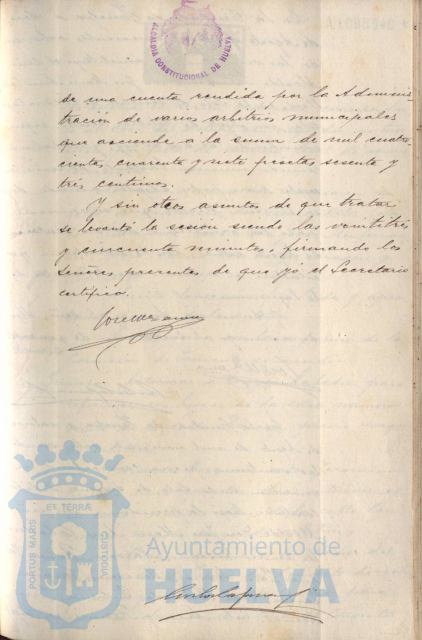 ALCALDIA CONSTITUCIONAL DE HUELVA
de una cuenta rendida por la Adminis-
tración de varios arbitrios municipales
que asciende á la suma de mil cuatro-
cientas cuarenta y siete pesetas sesenta y
tres céntimos.
Y sin otros asuntos de que tratar
se levantó la sesion siendo las veintitres
y cincuenta minutos, firmando los
Señores presentes de que yó el Secretario
certifico.
PORTUS MARIS ET TERRÆ CUSTODIA
Ayuntamiento de
HUELVA